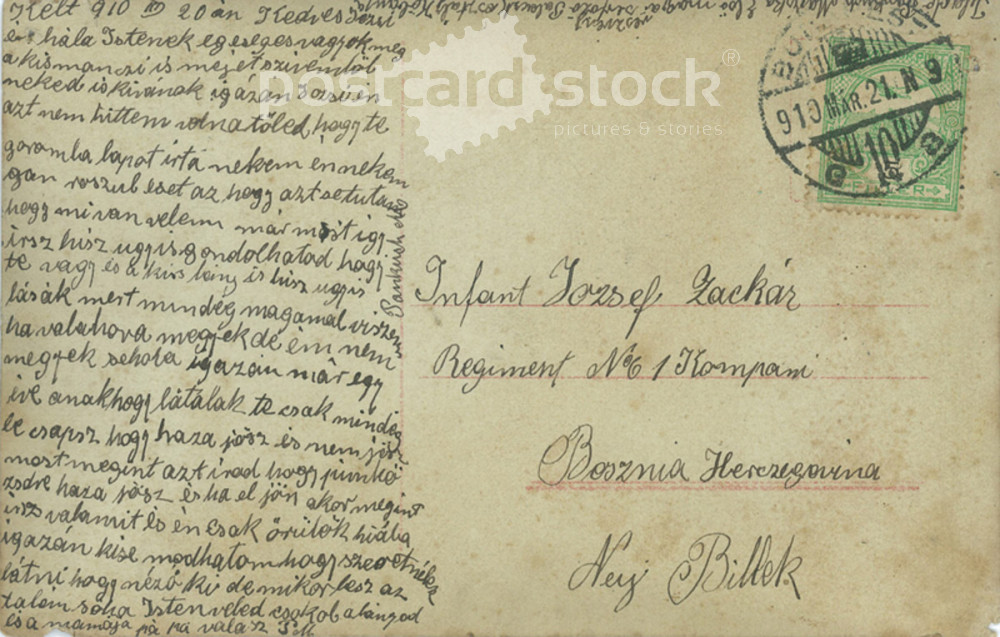 Kelt 910 III 20 án Kedves Józsi
én hála Istenek egeseges vagyok meg
a kismanczi is mejet szivemből
neked is kivánok igazán
azt nem hittem volna tőled hogy te
goromba lapot irtá nekem én nekem
igan roszul eset az hogy azt se tutam
hogy mi van velem már most igy
irsz hisz ugyis gondolhatad hogy
te vagy és a kis lány is hisz ugyis
lásák mert mindég magamal viszem
ha valahova megyek de ém nem
megyek sehola igazán már egy
éve anak hogy látálak te csak mindég
le csapsz hogy haza jösz és nem jösz
most megint azt irad hogy pünkö
zsdre haza jösz és ha el jön akor megint
irsz valamit és én csak örülök hiába
igazán kise modhatom hogy szeretnélek
látni hogy néző ki de mikor lesz az
talám soha Isten veled csokol a lányod
és a mamája pá pá valasz
postcardstock®
pictures & stories
910 MÁR. 21. N 9
10
Infant József Zackár
Regiment No 6 1 Kompani
Bosznia Herczegovina
Neij Billek